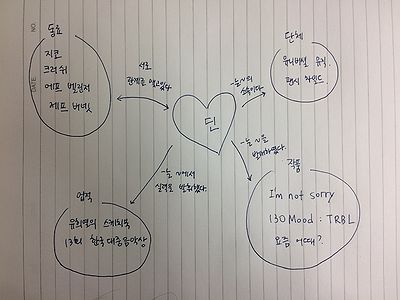 NO.
DATE
동료
지코
크러쉬
에프 벨린저
제프 버넷
서로
관계를 맺고있다
딘
-는 ~의
소속이다.
단체
유니버설 뮤직,
팬시 차일드
-는 ~에서
실력을 발휘했다
업적
유희열의 스케치북
13회 한국대중음악상
-는 ~을
발매하였다.
작품
I'm not sorry
130 Mood : TRBL
요즘 어때?